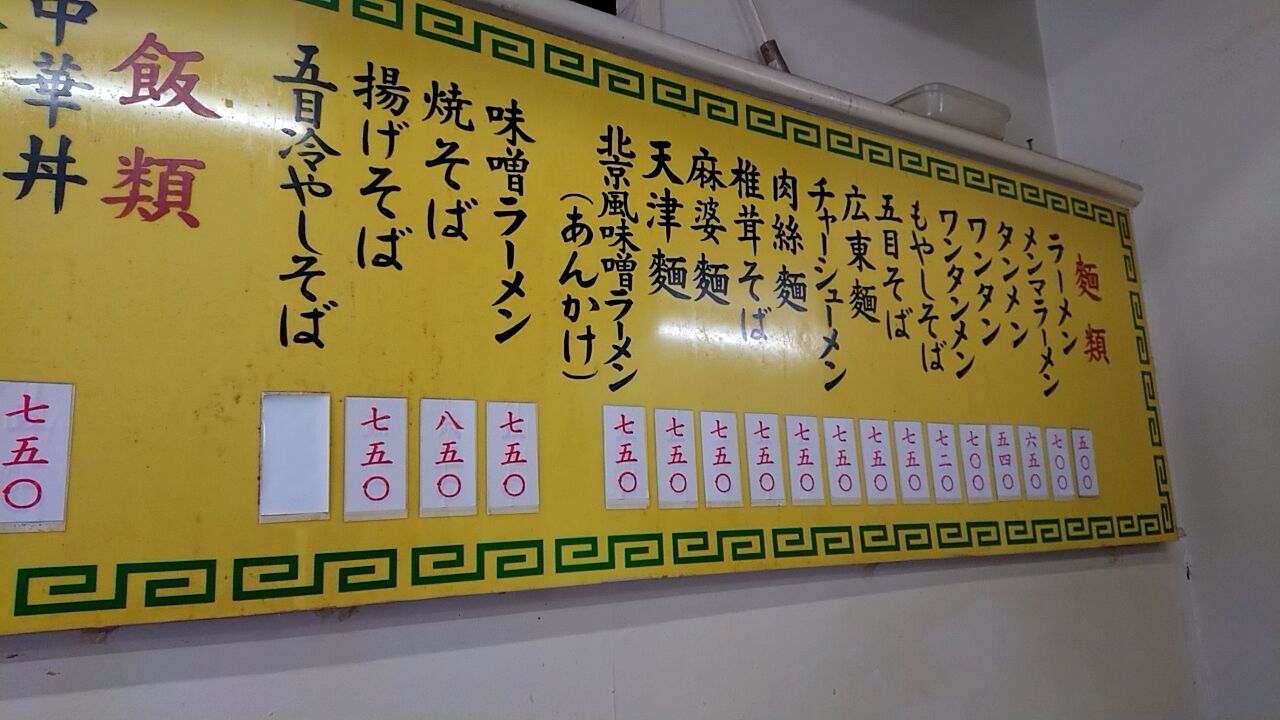 麵類
ラーメン
五〇〇
メンマラーメン
七〇〇
タンメン
六五〇
ワンタン
五四〇
ワンタンメン
七〇〇
もやしそば
七二〇
五目そば
七五〇
広東麵
七五〇
チャーシューメン
七五〇
肉絲麵
七五〇
椎茸そば
七五〇
麻婆麵
七五〇
天津麵
七五〇
北京風味噌ラーメン
(あんかけ)
七五〇
味噌ラーメン
七五〇
焼そば
八五〇
揚げそば
七五〇
五目冷やしそば
飯類
中華丼
七五〇